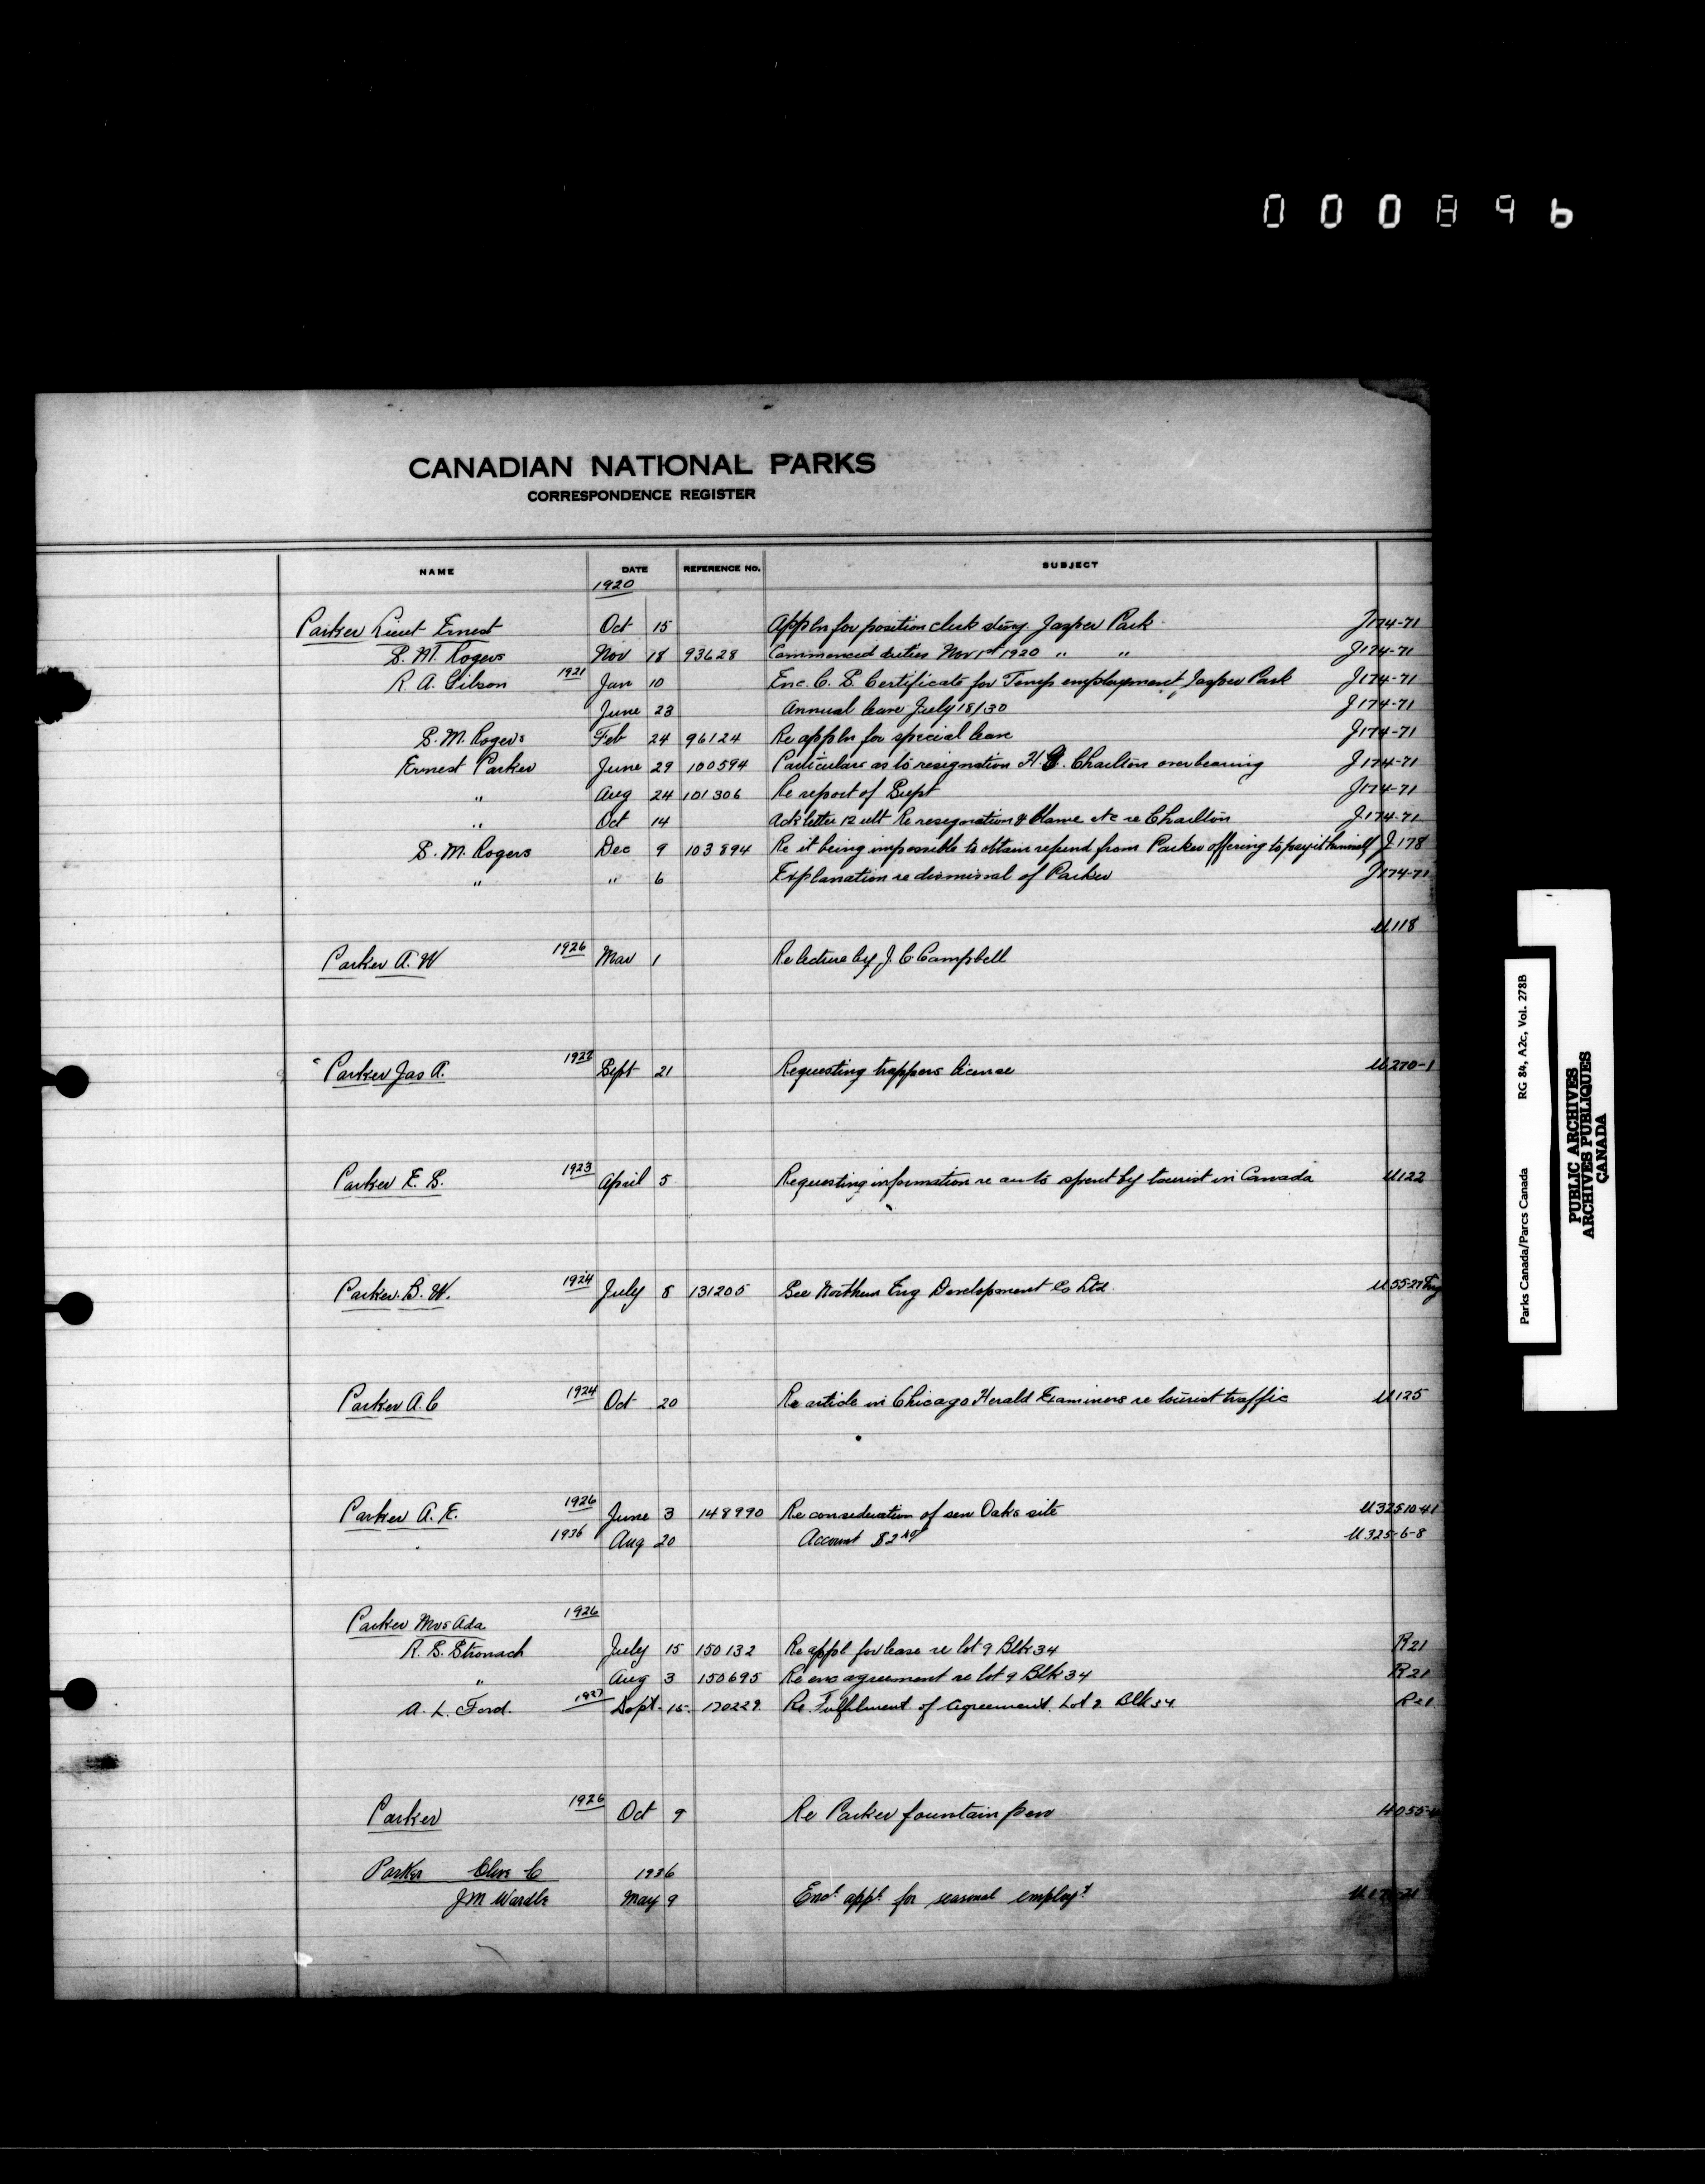 000896
CANADIAN NATIONAL PARKS
CORRESPONDENCE REGISTER
NAME DATE REFERENCE No. SUBJECT
1920
Parker Lieut Ernest Oct 15 Appln for position clerk Jasper Park J174-71
S. M. Rogers Nov 18 93628 Commenced duties Nov 1st 1920 " " J174-71
R A. Gibson 1921 Jan 10 Enc. C. S. Certificate for Temp employment, Jasper Park J174-71
June 23 Annual leave July 18/30 J174-71
S. M. Rogers Feb 24 96124 Re appln for special leave J174-71
Ernest Parker June 29 100594 Particulars as to resignation H.G. Charlton overbearing J174-71
" Aug 24 101306 Re report of Supt J174-71
" Oct 14 Ack letter 12 ult Re resignation & blame etc re Charlton J174-71
S. M. Rogers Dec 9 103894 Re it being impossible to obtain refund from Parker offering to pay it himself J178
" " 6 Explanation re dismissal of Parker J174-71
U118
Parker A. W 1926 Mar 1 Re lecture by J. C Campbell
Parker Jas A. 1922 Sept 21 Requesting trappers license U270-1
Parker E. S. 1923 April 5 Requesting information re am't spent by tourist in Canada U122
Parker. B. W. 1924 July 8 131205 See Northern Eng Development Co Ltd. U55-27 Eng
Parker A. C 1924 Oct 20 Re article in Chicago Herald Examiners re tourist traffic U125
Parker A. E. 1926 June 3 148990 Re consideration of sen Oaks site U325 10-41
1936 Aug 20 Account U325-6-8
Parker Mrs Ada 1926
R. S. Stronach July 15 150132 Re appl for lease re lot 9 Blk 34 R21
" Aug 3 150695 Re enc agreement re lot 9 Blk 34 R21
A. L. Ford. 1927 Sept. 15. 170229. Re. Fulfilment of Agreement. Lot 9 Blk 34. R21.
Parker 1926 Oct 9 Re Parker fountain pen
Parker Clive C 1936
J M Wardle May 9 Encl appl. for seasonal employt
Parks Canada/Parcs Canada RG 84, A2c, Vol. 278B
PUBLIC ARCHIVES
ARCHIVES PUBLIQUES
CANADA